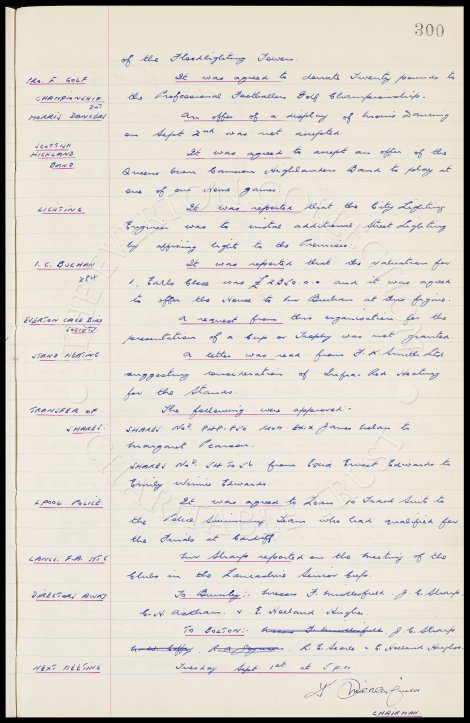 300
of the Floodlighting Towers.
PRO. F. GOLF CHAMPIONSHIP It was agreed to donate Twenty pounds to
the Professional Footballers Golf Championship.
MORRIS DANCERS An offer of a display of Morris Dancing
on Sept 2nd was not accepted
SCOTTISH HIGHLAND BAND It was agreed to accept an offer of the
Queens Own Cameron Highlanders Band to play at
one of our Home games.
LIGHTING It was reported that the City Lighting
Engineer was to install additional Street Lighting
by affixing light to the Premises.
I. C. BUCHAN 284 It was reported that the valuation for
1, Earls Close was £2250.0.0 and it was agreed
to offer the House to Mr Buchan at this figure.
EVERTON CAGE BIRD SOCIETY A request from this organisation for the
presentation of a Cup or Trophy was not granted
STAND HEATING A letter was read from F. K. Smith Ltd
suggesting consideration of Infra-Red Heating
for the Stands.
TRANSFER OF SHARES. The following were approved.
SHARES Nos. from James Nolan to
Margaret Pearson.
SHARES Nos. 54 to 56 from Ernest Edwards to
Emily Winnie Edwards.
LPOOL POLICE It was agreed to Loan 10 Track Suits to
the Police Swimming Team who had qualified for
the Finals at Cardiff.
LANCS. F.A. MTG Mr Sharp reported on the Meeting of the
Clubs in the Lancashire Senior Cup.
DIRECTORS AWAY To Burnley:- Messrs F. Micklesfield J. C. Sharp
C. H. Askham. & E. Holland Hughes
To BOLTON:- J. C. Sharp
R. E. Searle & E. Holland Hughes.
NEXT MEETING Tuesday Sept 1st at 5 p.m
CHAIRMAN.